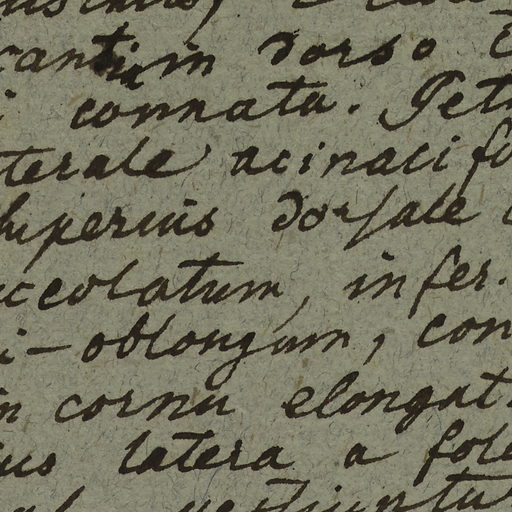 cantium in dorso
i connata. Pet
terale acinacifo
superius dorsale
ccolatum, infer.
i-oblongum, con
in cornu elongat
ius latera a fol